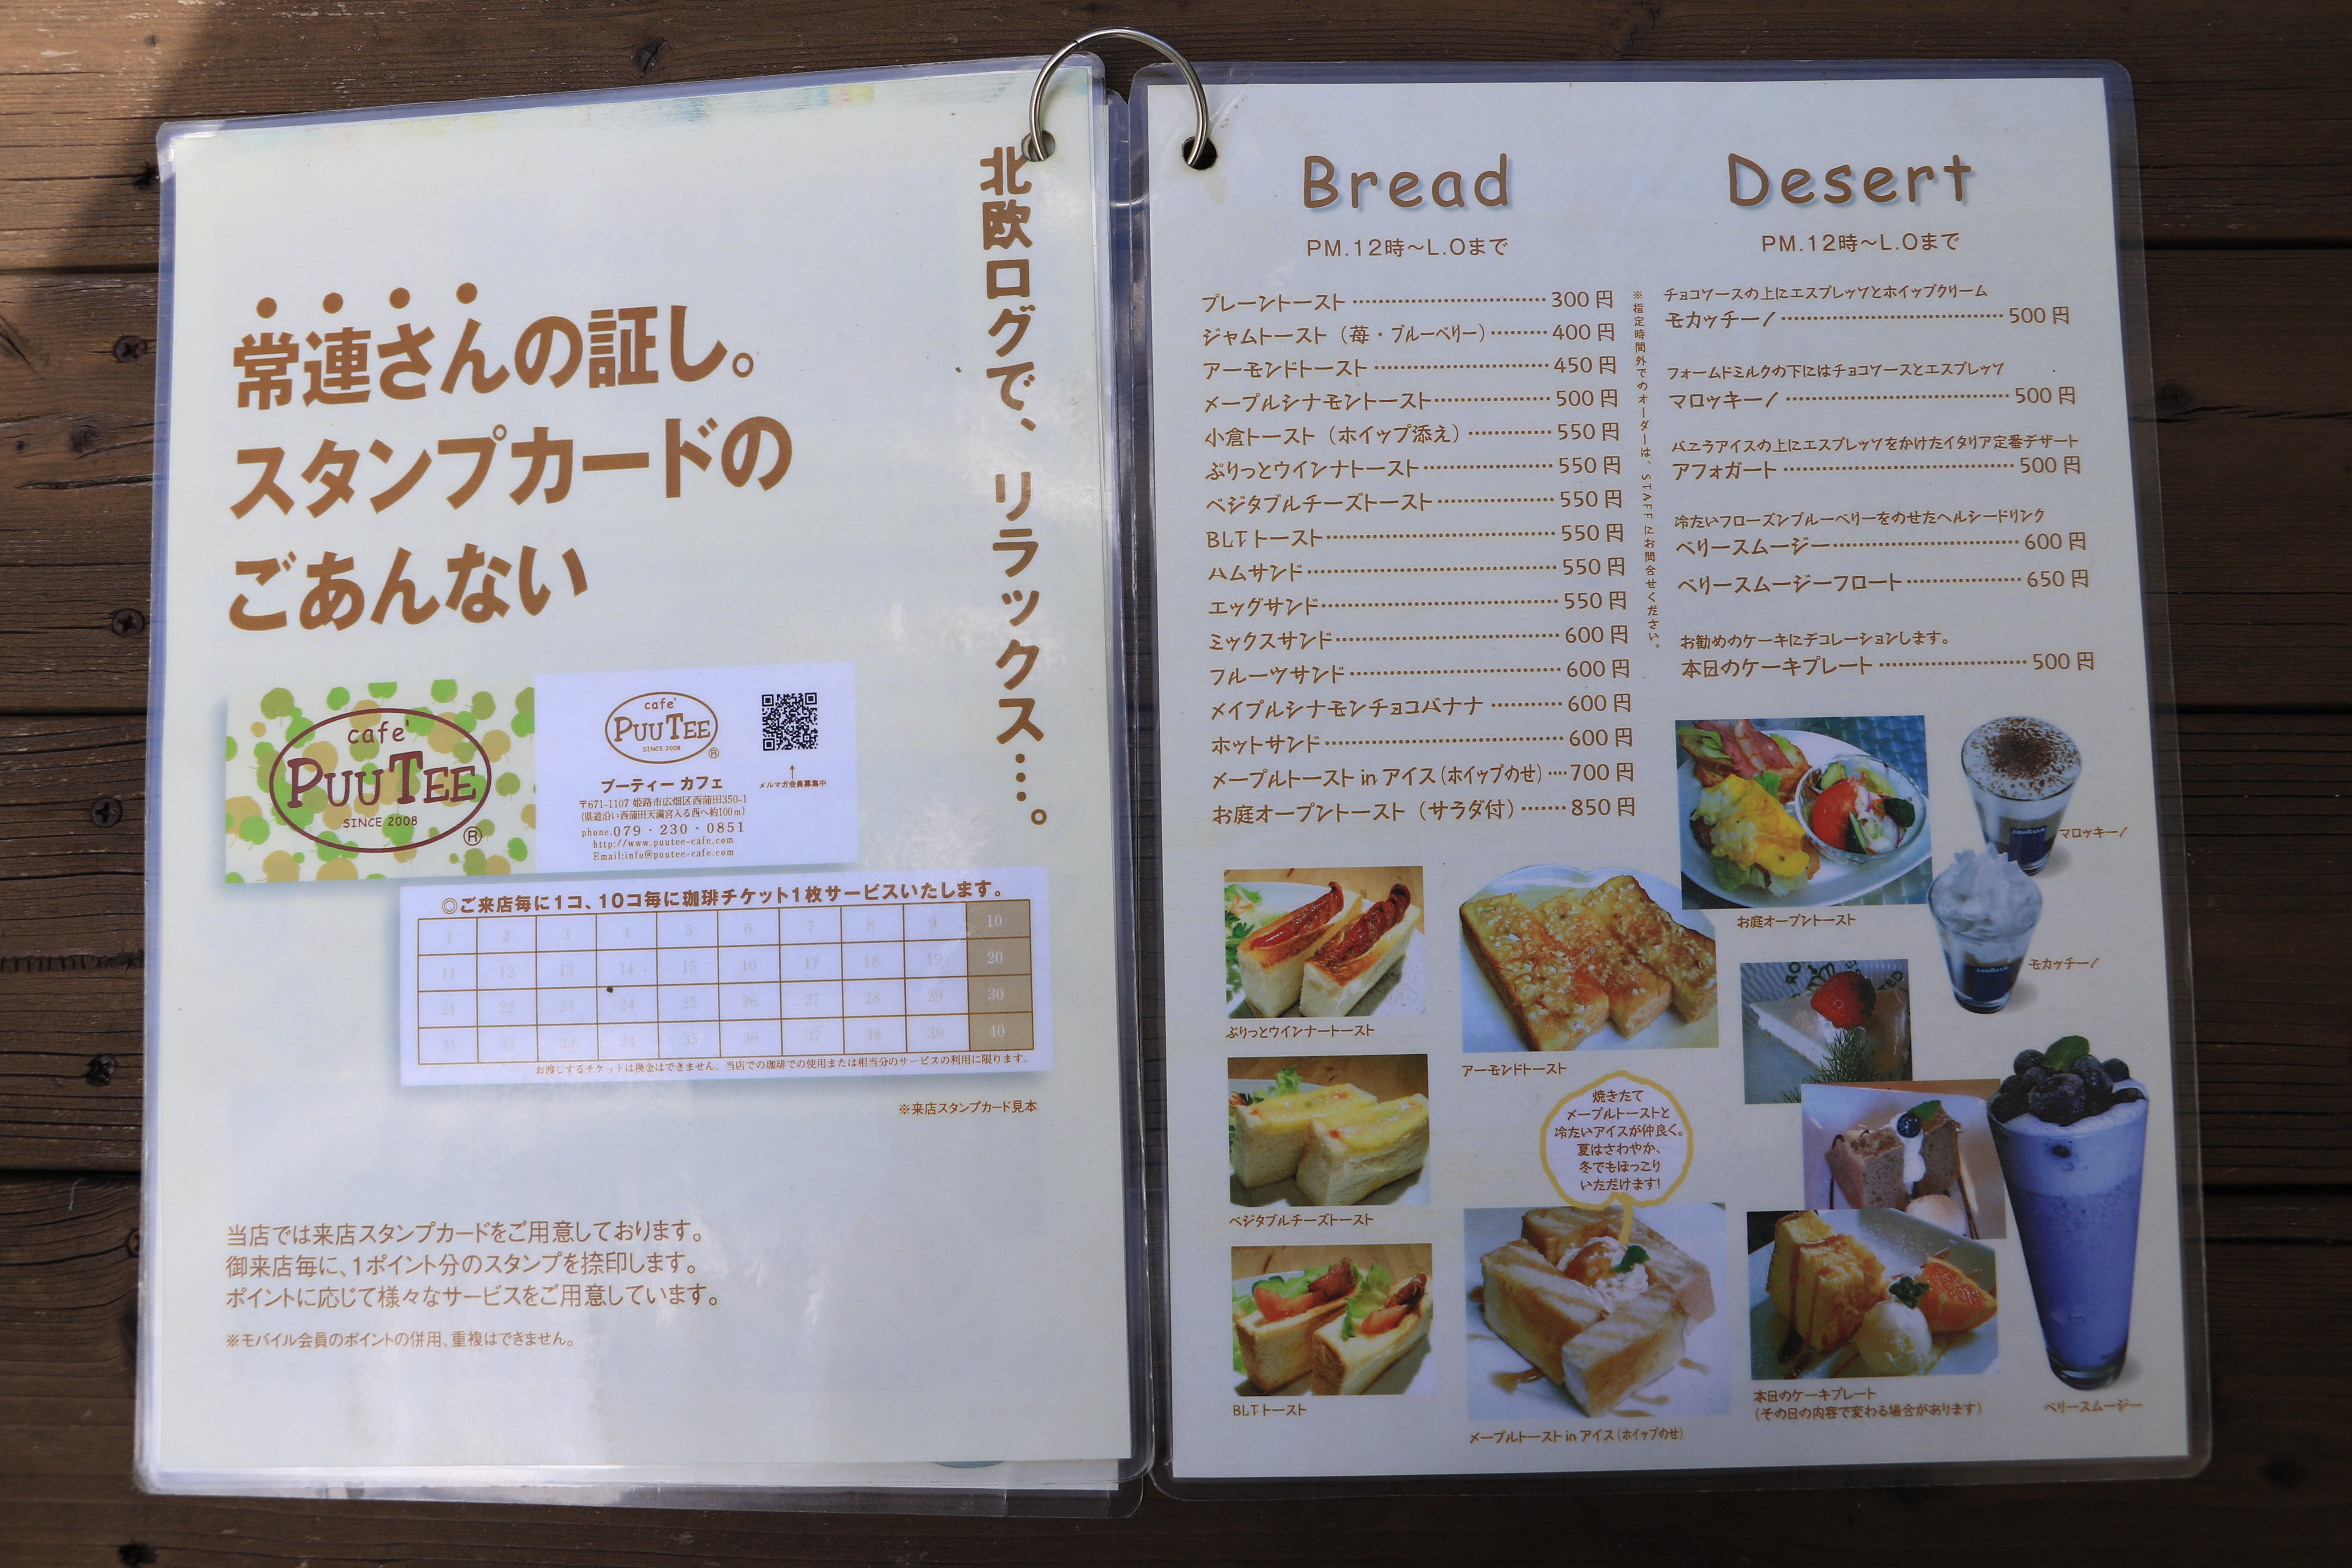 北欧ログで、リラックス…。
常連さんの証し。
スタンプカードの
ごあんない
cafe'
PUU TEE
SINCE 2008
®
cafe'
PUU TEE
SINCE 2008
®
プーティー カフェ
〒671-1107 姫路市広畑区西蒲田350-1
(県道沿い西蒲田天満宮入る西へ約100m)
phone.079・230・0851
http://www.puutee-cafe.com
Email:info@puutee-cafe.com
↑
メルマガ会員募集中
◎ご来店毎に1コ、10コ毎に珈琲チケット1枚サービスいたします。
1 2 3 4 5 6 7 8 9 10
11 12 13 14 15 16 17 18 19 20
21 22 23 24 25 26 27 28 29 30
31 32 33 34 35 36 37 38 39 40
お渡しするチケットは換金はできません。当店での珈琲での使用または相当分のサービスの利用に限ります。
※来店スタンプカード見本
当店では来店スタンプカードをご用意しております。
御来店毎に、1ポイント分のスタンプを捺印します。
ポイントに応じて様々なサービスをご用意しています。
※モバイル会員のポイントの併用、重複はできません。
Bread
PM.12時〜L.Oまで
プレーントースト 300円
ジャムトースト（苺・ブルーベリー） 400円
アーモンドトースト 450円
メープルシナモントースト 500円
小倉トースト（ホイップ添え） 550円
ぷりっとウインナトースト 550円
ベジタブルチーズトースト 550円
BLTトースト 550円
ハムサンド 550円
エッグサンド 550円
ミックスサンド 600円
フルーツサンド 600円
メイプルシナモンチョコバナナ 600円
ホットサンド 600円
メープルトースト in アイス(ホイップのせ) 700円
お庭オープントースト（サラダ付） 850円
※指定時間外でのオーダーは、STAFFにお問合せください。
Desert
PM.12時〜L.Oまで
チョコソースの上にエスプレッソとホイップクリーム
モカッチーノ 500円
フォームドミルクの下にはチョコソースとエスプレッソ
マロッキーノ 500円
バニラアイスの上にエスプレッソをかけたイタリア定番デザート
アフォガート 500円
冷たいフローズンブルーベリーをのせたヘルシードリンク
ベリースムージー 600円
ベリースムージーフロート 650円
お勧めのケーキにデコレーションします。
本日のケーキプレート 500円
お庭オープントースト
マロッキーノ
モカッチーノ
ぷりっとウインナートースト
アーモンドトースト
ベジタブルチーズトースト
焼きたて
メープルトーストと
冷たいアイスが仲良く。
夏はさわやか、
冬でもほっこり
いただけます!
BLTトースト
メープルトースト in アイス(ホイップのせ)
本日のケーキプレート
(その日の内容で変わる場合があります)
ベリースムージー